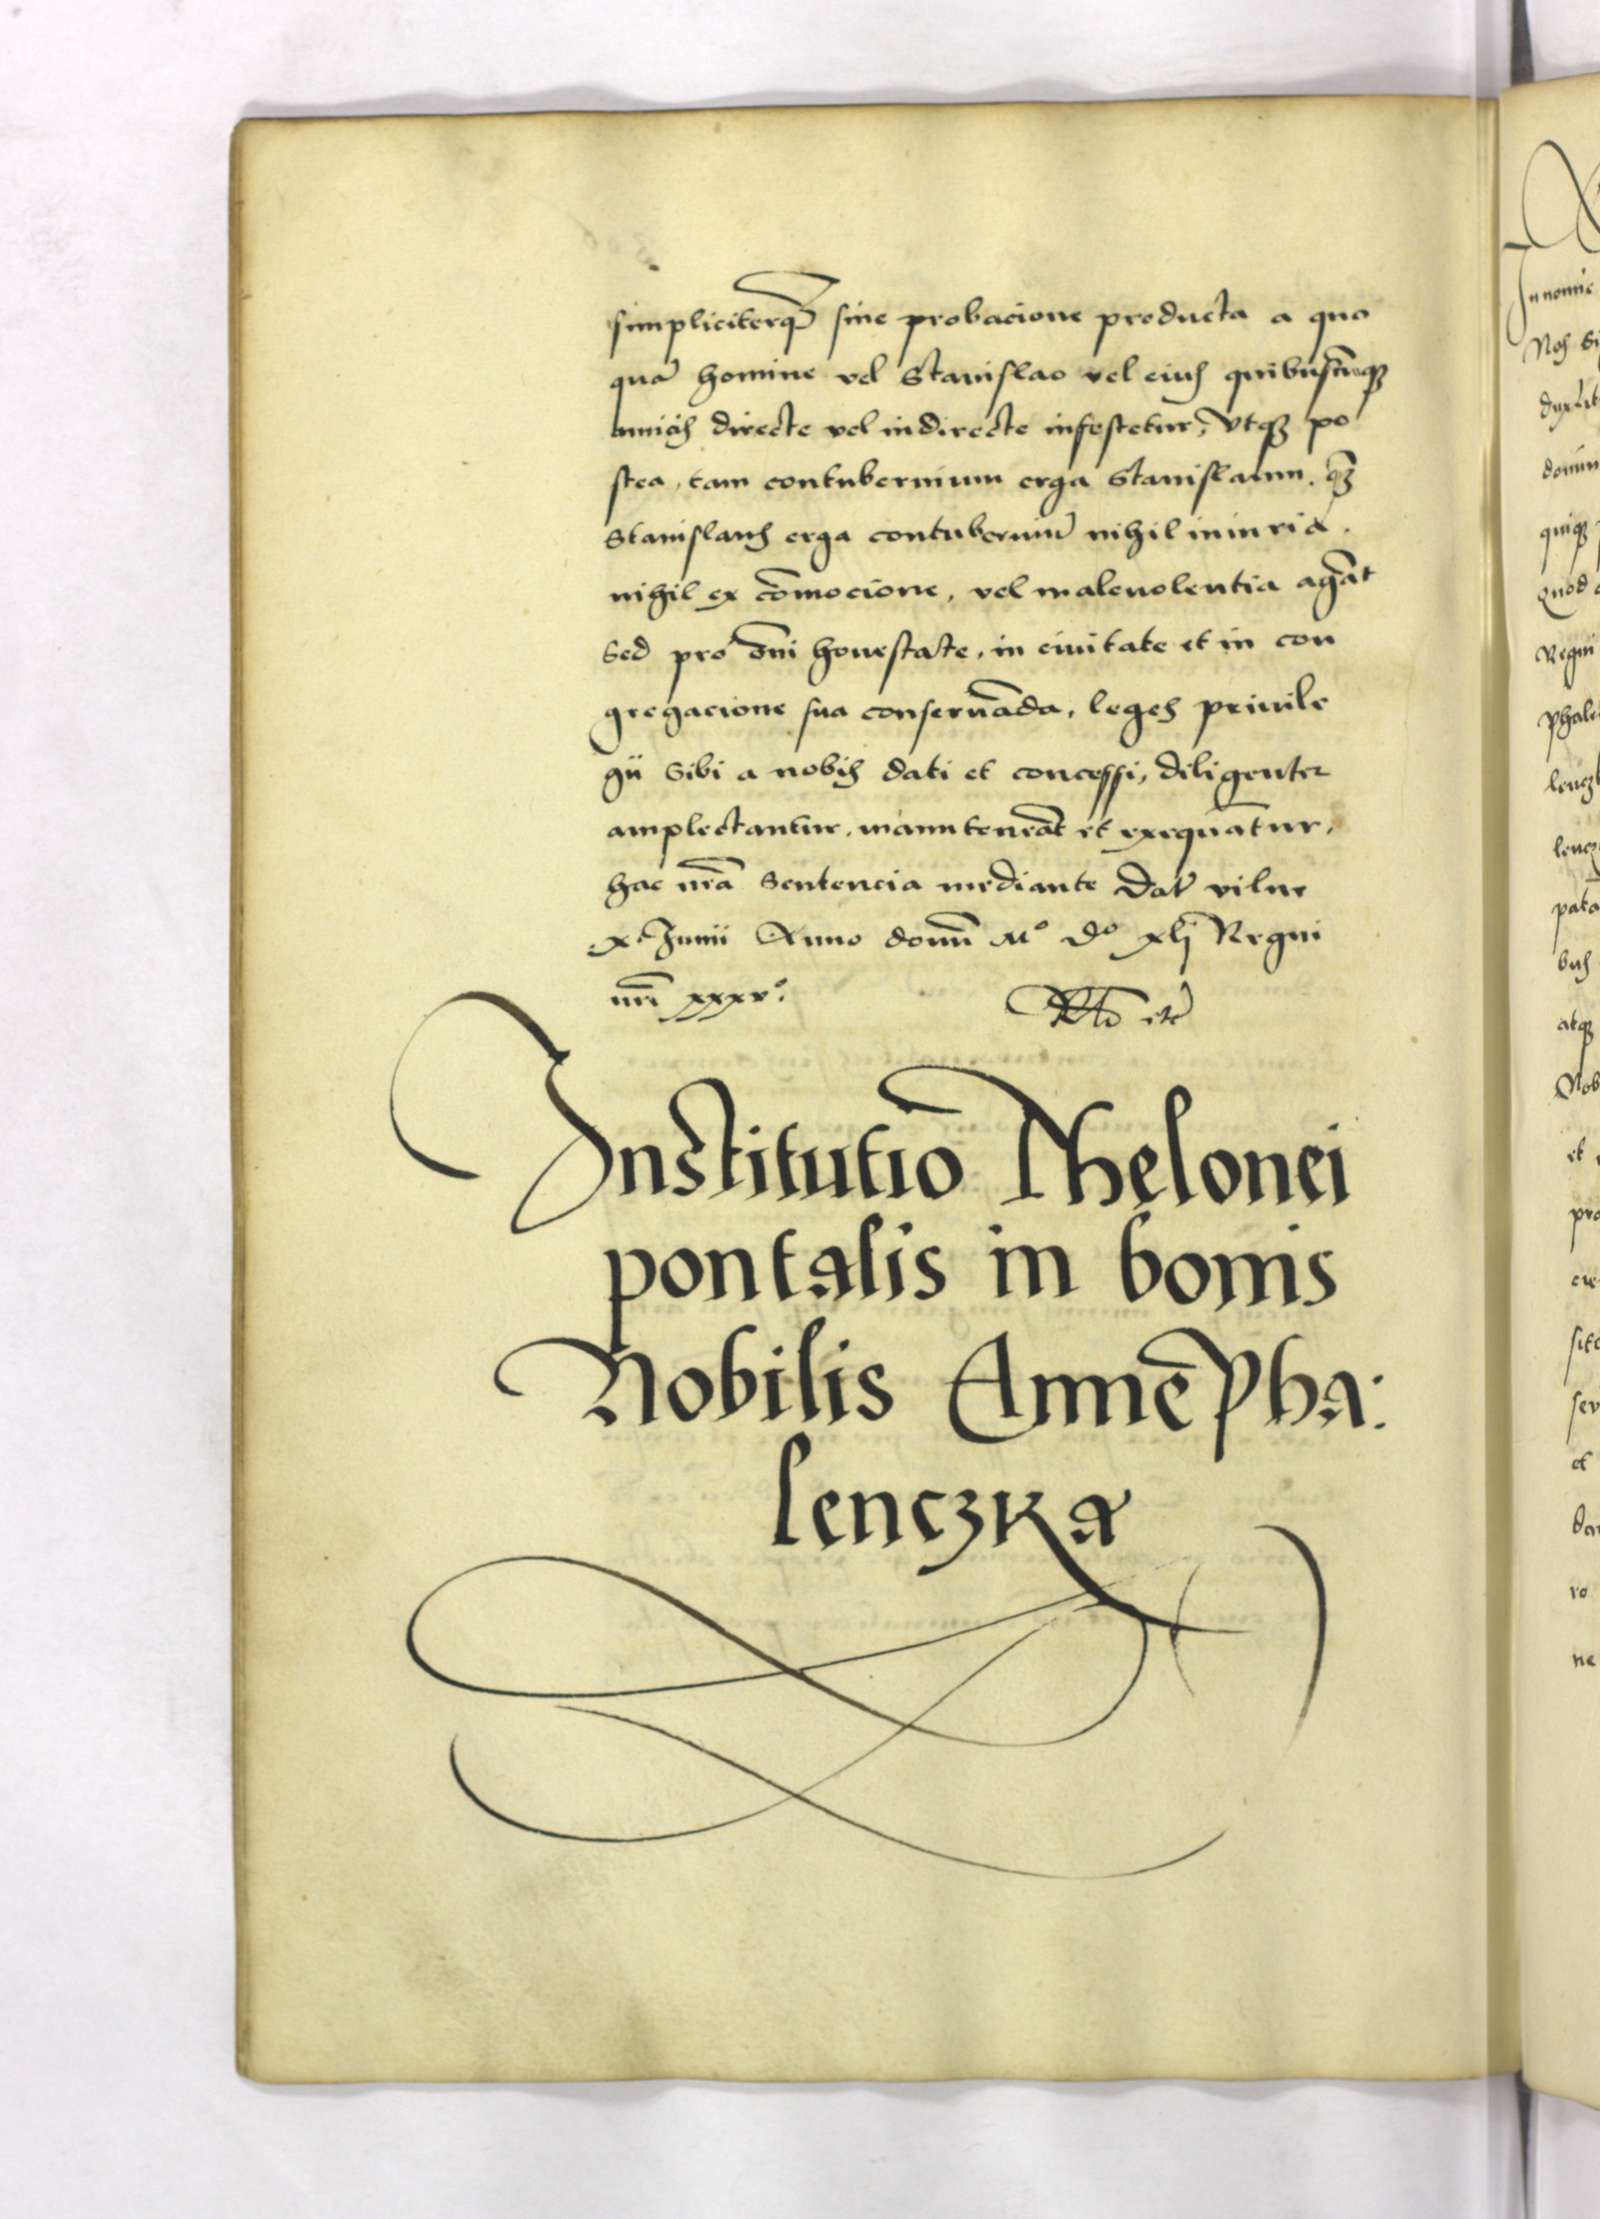 simpliciterq̃ sine probacione producta a quo
quã homine vel Stanislao vel eius quibuscũqꝫ
amicis directe vel indirecte infestetur, vtqꝫ po
stea, tam contubernium erga Stanislaum, q̃ꝫ
Stanislaus erga contuberniũ nihil iniuria,
nihil ex cõmocione, vel maleuolentia agãt
Sed pro õni honestate, in ciuitate et in con
gregacione sua conseruãda, leges priuile
gii sibi a nobis dati et concessi, diligenter
amplectantur, manuteneãt et exequãtur,
hac nrã Sentencia mediante Dat̃ vilne
x Junii Anno domĩ Mº Dº xlj Regni
nrĩ xxxvº.
Institutio Thelonei
pontalis in bonis
Nobilis Anne Pha:
lenczka
In nomie
Nos Si
domin
quiqꝫ
Quod
Regni
phale
lencz
lencz
pata
bus
atqꝫ
Nob
et
pro
cre
sit
ser
et
dar
ro
ne